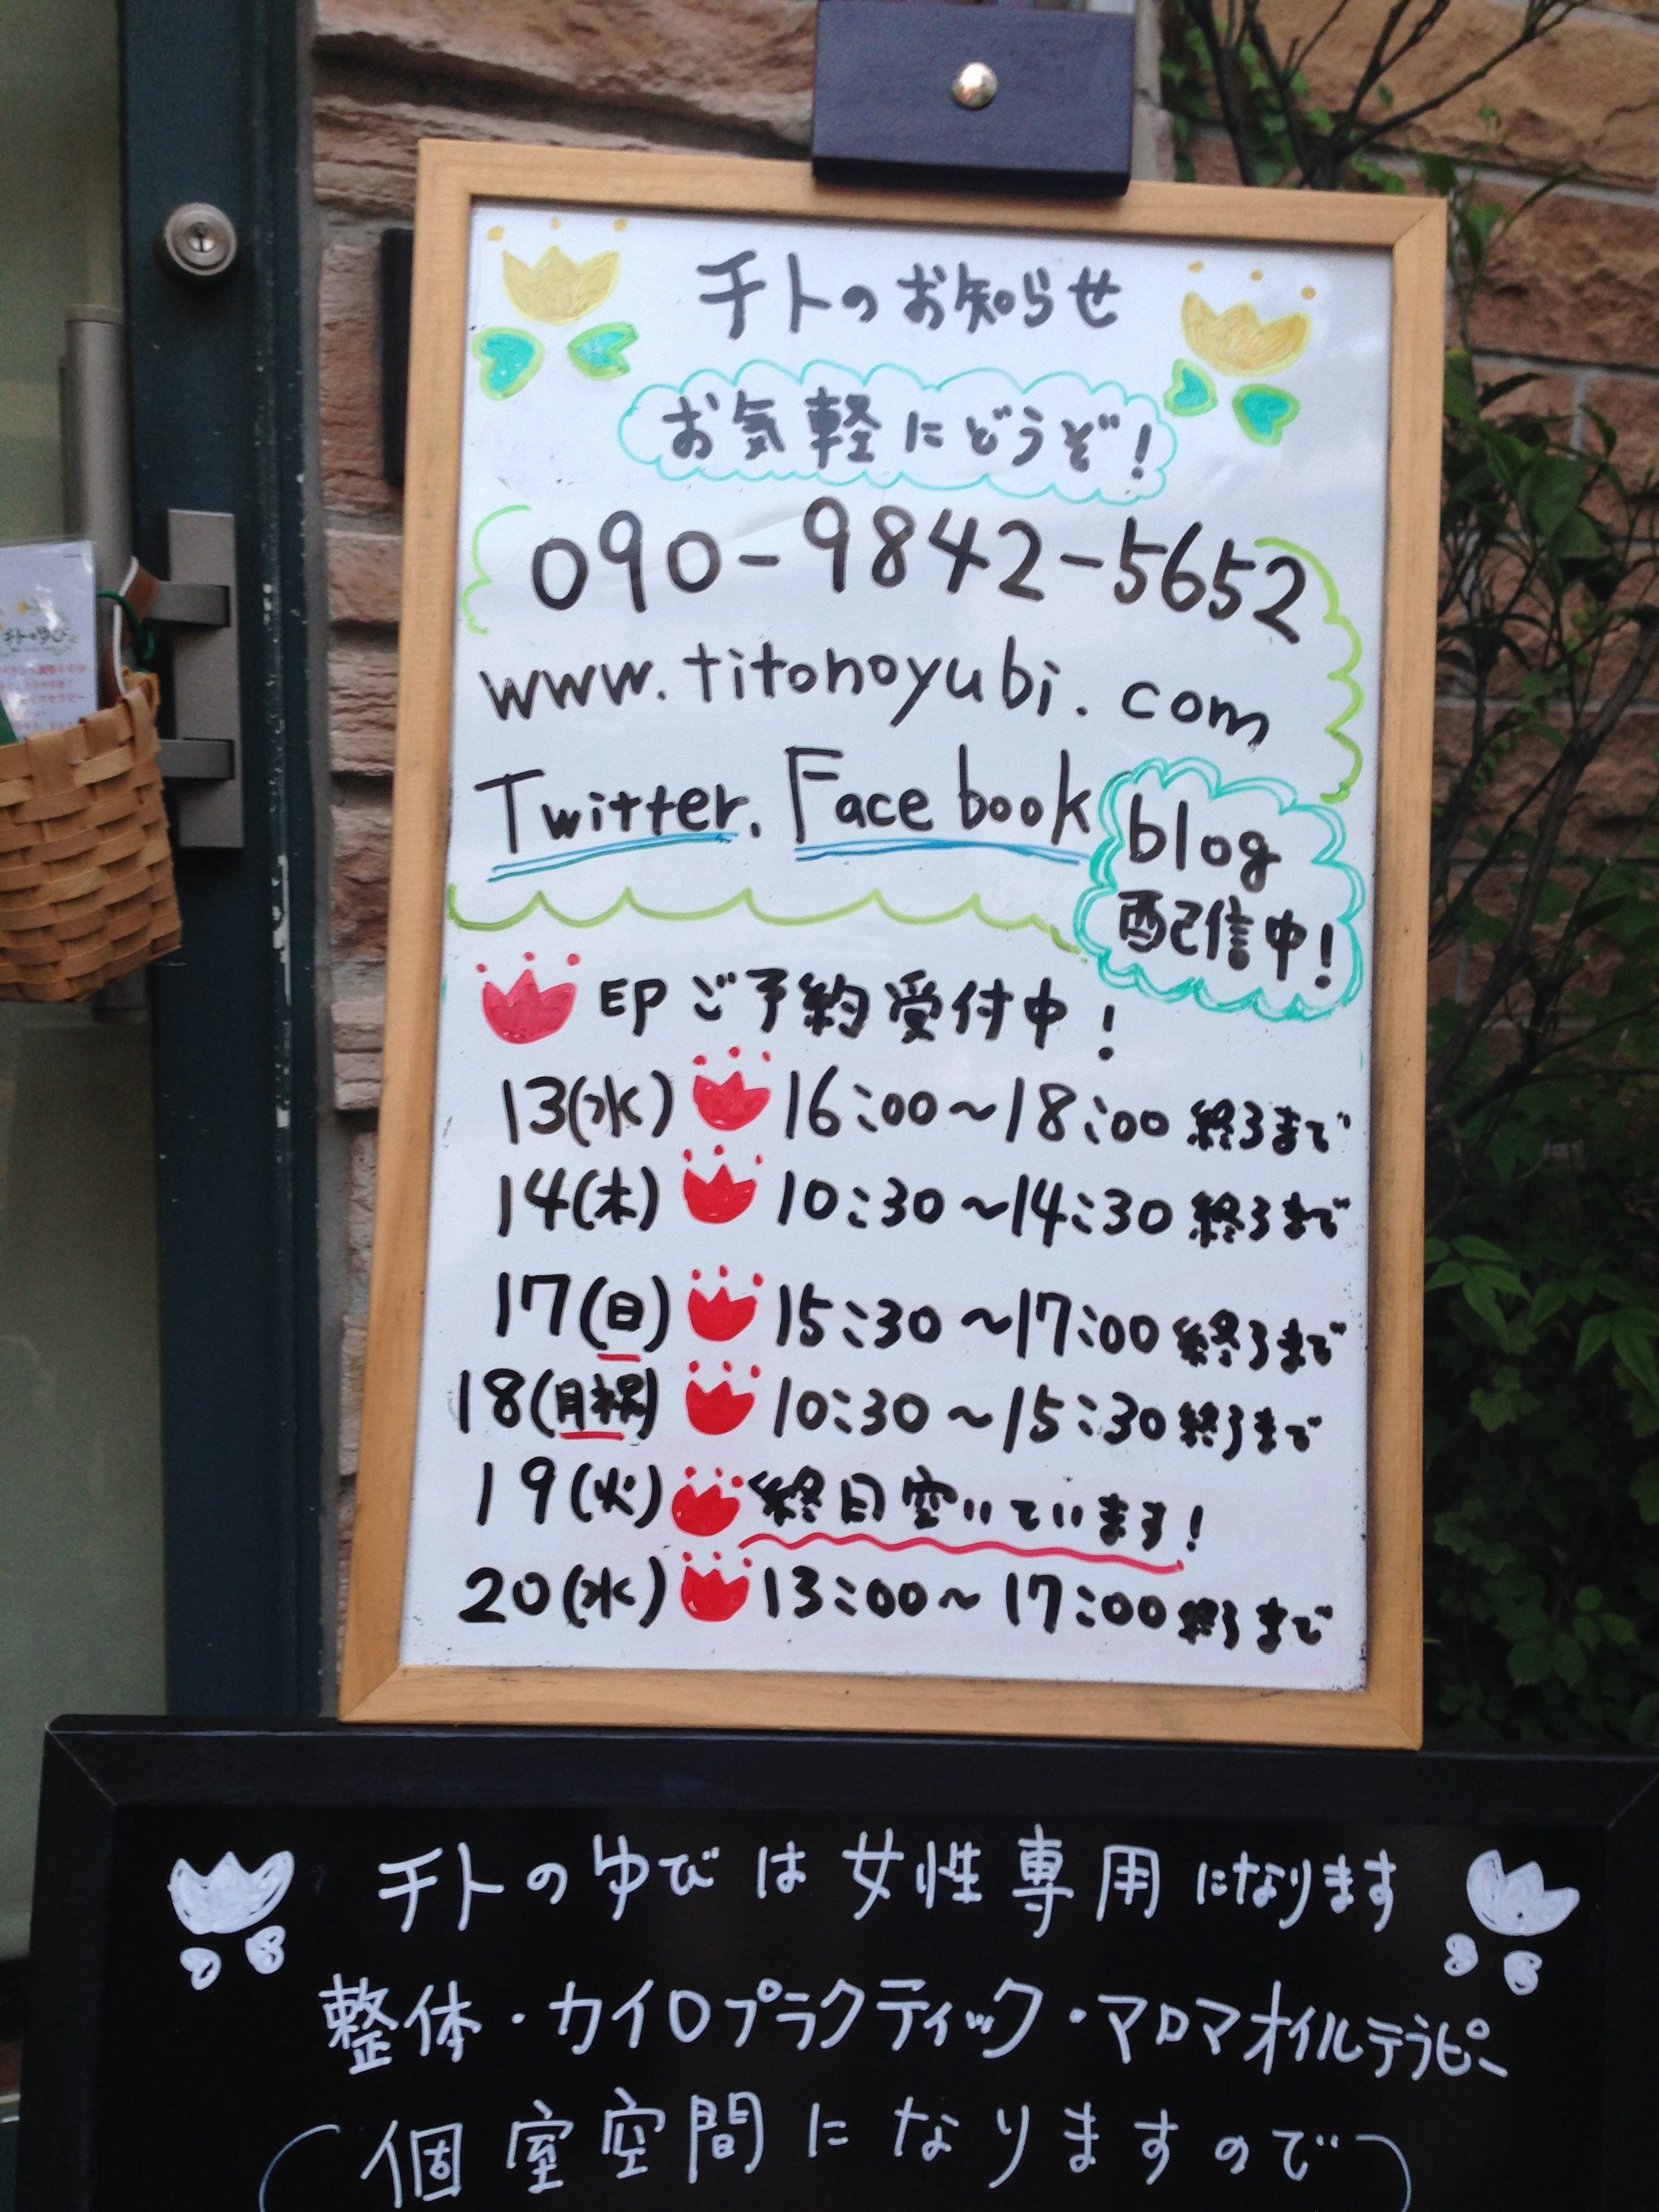 チトのお知らせ
お気軽にどうぞ!
090-9842-5652
www.titonoyubi.com
Twitter. Facebook
blog
配信中!
EP ご予約受付中!
13(水) 16:00~18:00 終了まで
14(木) 10:30~14:30 終了まで
17(日) 15:30~17:00 終了まで
18(月祝) 10:30~15:30 終了まで
19(火) 終日空いています!
20(水) 13:00~17:00 終了まで
チトのゆび
チトのゆびは女性専用になります
整体・カイロプラクティック・アロマオイルテラピー
個室空間になりますので